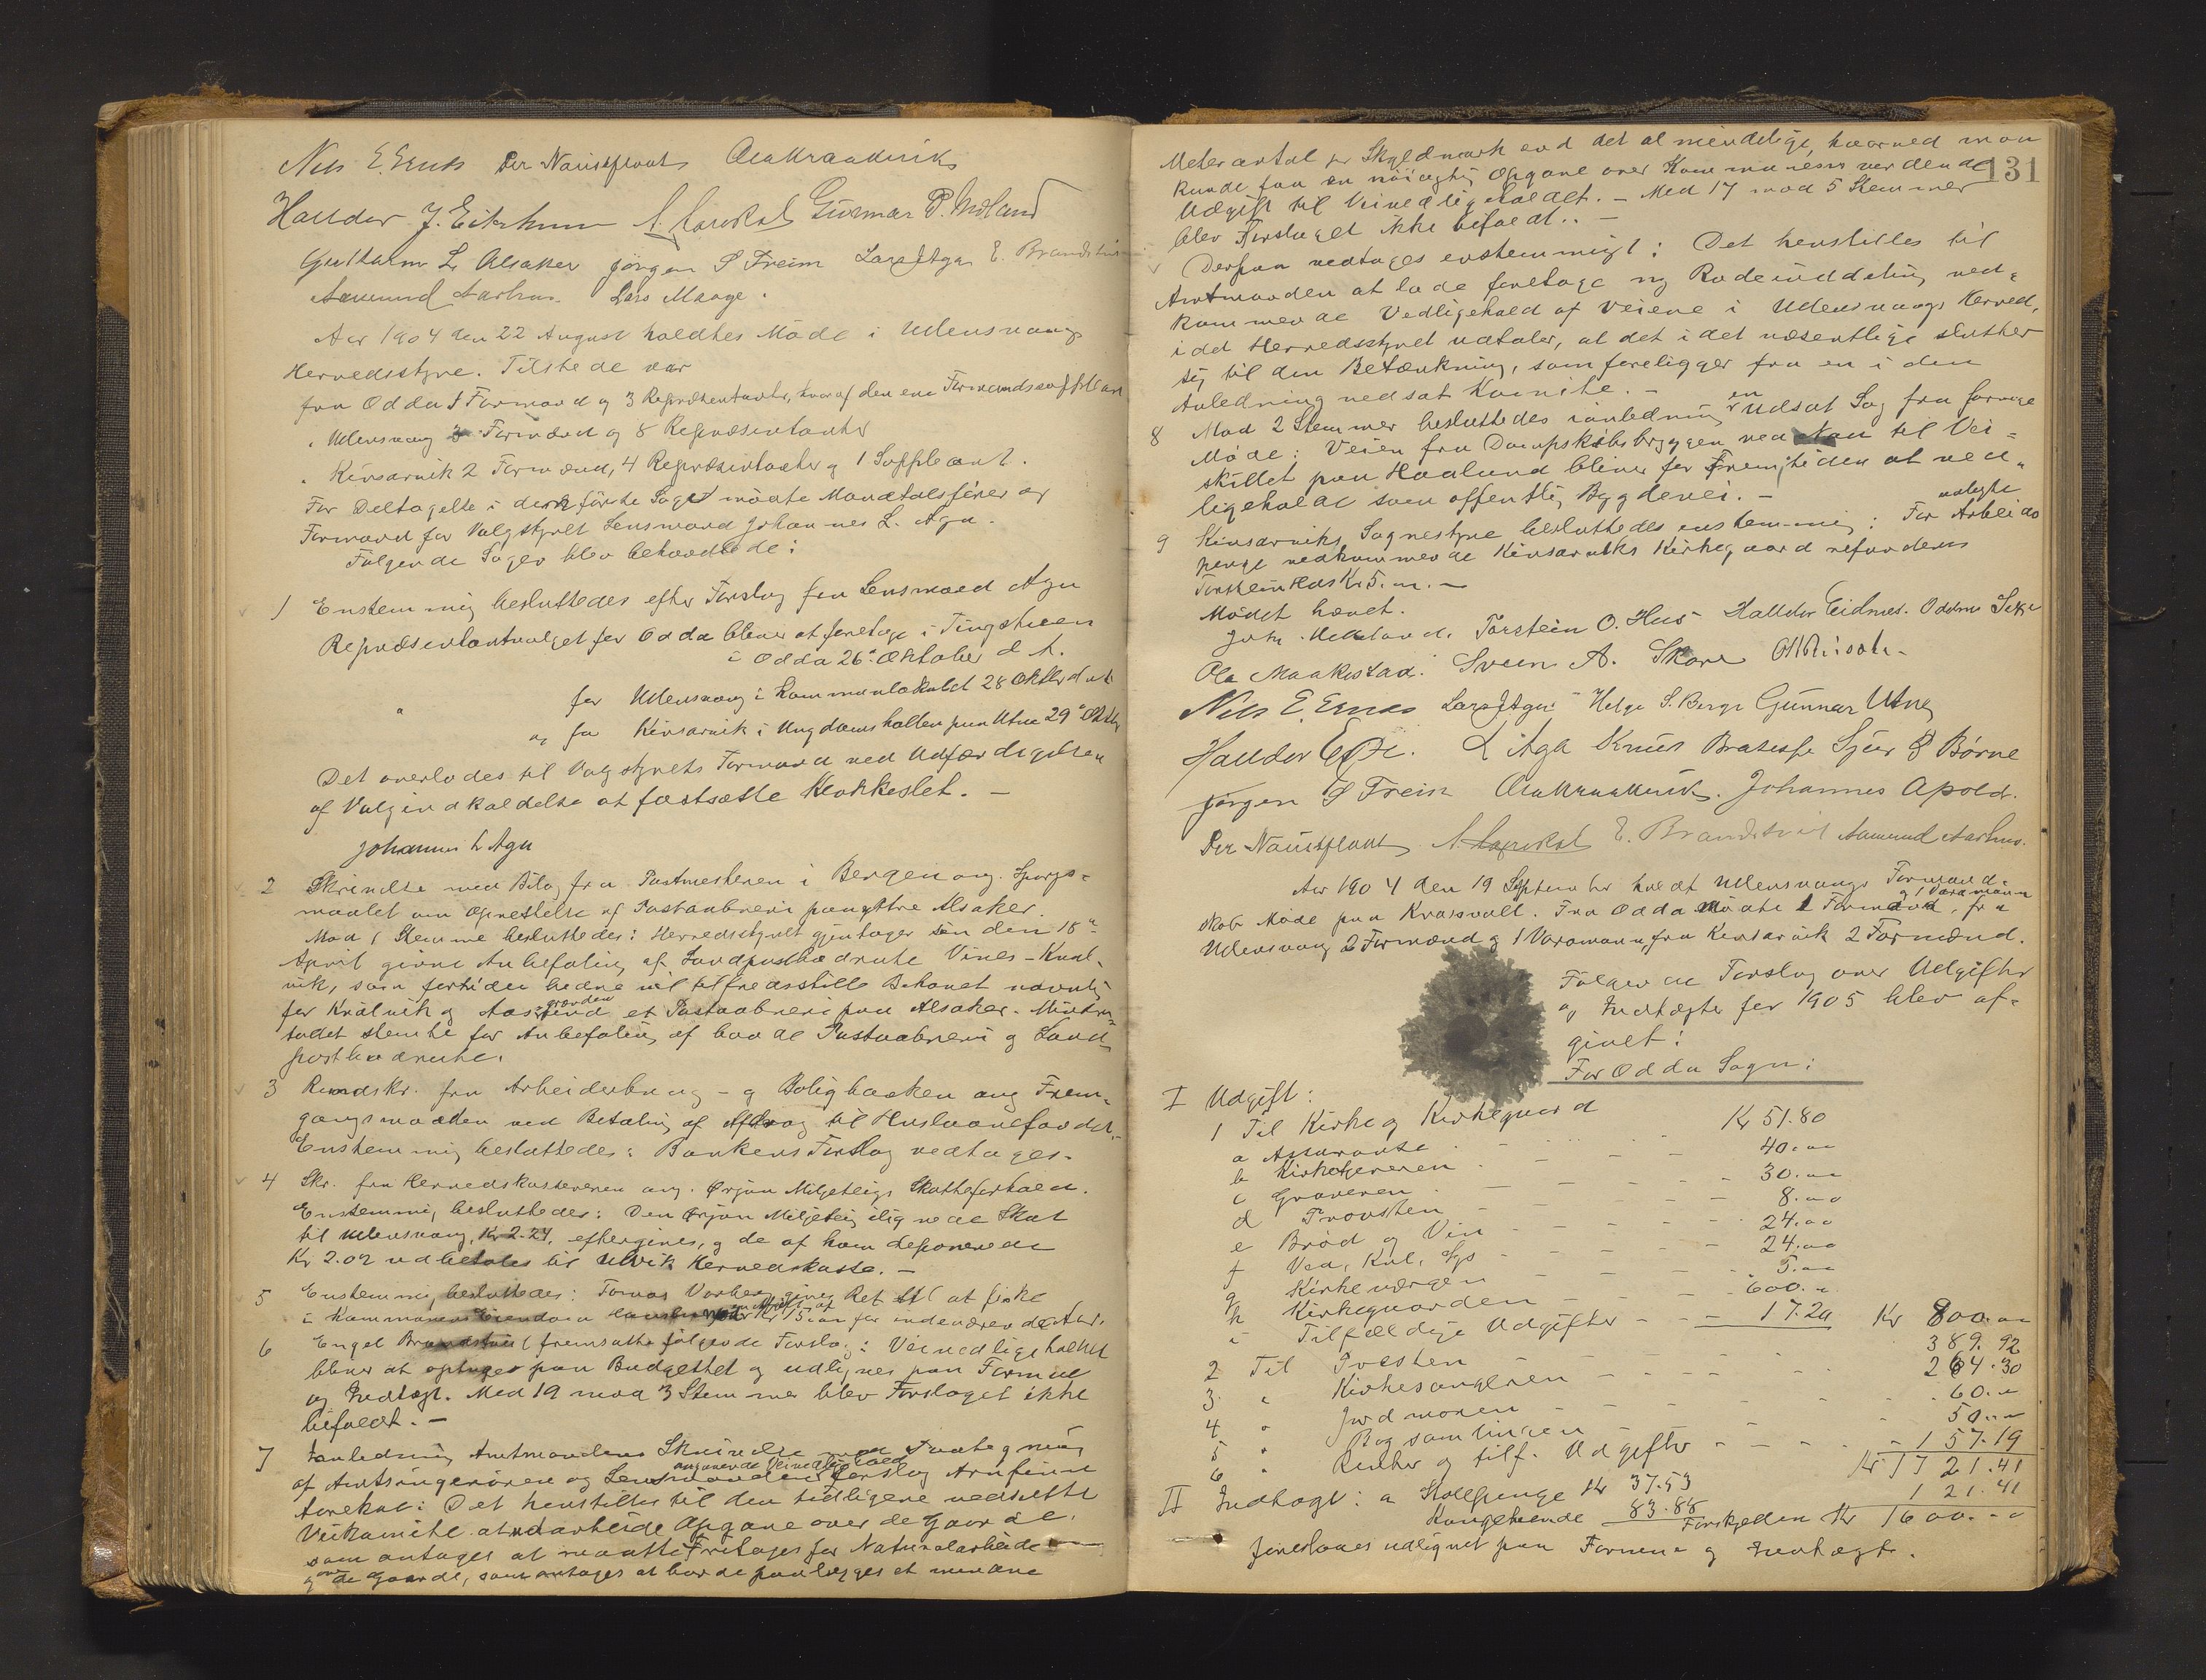 Nils E. Ernes Per Naustflaat Ola Kraakevik
Halldor J. Eitrheim A. Lofthus Gunnar P. Meland
Guttorm L. Alsaker Jørgen S Freim Lars J Aga E. Brandstveit
Aamund Aarhus. Lars Maage.
Aar 1904 den 22 August holdtes Møde i Ullensvangs
Herredsstyre. Tilstede var
fra Odda 1 Formand og 3 Repræsentanter, hvoraf den ene Formandssuppleant
" Ullensvang 3 Formænd og 8 Repræsentanter
" Kinsarvik 2 Formænd, 4 Repræsentanter og 1 Suppleant.
For Deltagelse i den første Sag mødte Mandtalsfører og
Formand for Valgstyret Lensmand Johannes L. Aga.
Følgende Sager blev behandlede:
1 Enstemmig besluttedes efter Forslag fra Lensmand Aga
Repræsentantvalget for Odda bliver at foretage i Tingstuen
i Odda 26de Oktober d. A.
" for Ullensvang i Kommunelokalet 28 Oktbr d. A.
og for Kinsarvik i Ungdomshallen paa Utne 29de Oktbr
Det overlodes til Valgstyrets Formand ved Udfærdigelsen
af Valgindkaldelse at fastsætte Klokkeslet. –
Johannes L Aga
2 Skrivelse med Bilag fra Postmesteren i Bergen ang. Spørgs-
maalet om Oprettelse af Postaabneri paa Ytre Alsaker.
Mod 1 Stemme besluttedes: Herredsstyret gjentager sin den 18de
April givne Anbefaling af Landpostbudrute Vines – Kval-
vik, som fortiden bedre vil tilfredsstille Behovet navnlig
for Kvalvik og Aasgrenden end et Postaabneri paa Alsaker. Mindre-
tallet stemte for Anbefaling af baade Postaabneri og Land-
postbudrute.
3 Rundskr. fra Arbeiderbrug- og Boligbanken ang Frem-
gangsmaaden ved Betaling af Afdrag til Huslaanefondet. –
Enstemmig besluttedes: Bankens Forslag vedtages.
4 Skr. fra Herredskassereren ang. Ørjan Miljeteigs Skatteforhold.
Enstemmig besluttedes: Den Ørjan Miljeteig ilignede Skat
til Ullensvang, Kr 2.24, eftergives, og de af ham deponerede
Kr 2.02 udbetales til Ulvik Herredskasse. –
5 Enstemmig besluttedes: Tomas Vorberg gives Ret til at fiske
i Kommunens Eiendom mod Afgift af Kr 15.00 for indeværende Aar.
6 Engel Brandstveit fremsatte følgende Forslag: Veivedligeholdet
bliver at optages paa Budgettet og udlignes paa Formue
og Indtægt. Med 19 mod 3 Stemmer blev Forslaget ikke
bifaldt. –
7 I anledning Amtmandens Skrivelse med Paategning
af Amtsingeniøren og Lensmanden angaaende Veivedligehold forslog Arnfinn
Torekoe: Det henstilles til den tidligere nedsatte
Veikomite at udarbeide Opgave over de Gaarde,
som antages at maatte fritages for Naturalarbeide
og over de Gaarde, som antages at burde paalægges et mindre
131
Meterantal pr Skyldmark end det almindelige, hvorved man
kunde faa en nøiagtig Opgave over Kommunens vordende
Udgift til Veivedligeholdet. – Med 17 mod 5 Stemmer
blev Forslaget ikke bifaldt. –
Derpaa vedtages enstemmigt: Det henstilles til
Amtmanden at lade foretage ny Rodeinddeling ved-
kommende Vedligehold af Veiene i Ullensvangs Herred,
idet Herredsstyret udtaler, at det i det væsentlige slutter
sig til den Betænkning, som foreligger fra en i den
Anledning nedsat Komite. –
8 Mod 2 Stemmer besluttedes i anledning en Udsat Sag fra forrige
Møde: Veien fra Dampskibsbryggen ved Naa til Vei-
skillet paa Haaland bliver for Fremtiden at ved-
ligeholde som offentlig Bygdevei. –
9 Kinsarviks Sognestyre besluttedes enstemmig: For udlagte Arbeids
penge vedkommende Kinsarviks Kirkegaard refunderes
Torstein Hus Kr 5.00. –
Mødet hævet.
John Meland. Torstein O. Hus Halldor Eidnes. Oddmund Sexe
Ola Maakestad. Svein A. Skare
Nils E. Ernes Lars J Aga Helge S. Berge Gunnar Utne
Halldor L Aga Knut Bratespe Sjur Børve
Jørgen S Freim Ola Kraakevik. Johannes Apold.
Per Naustflaat A. Lofthus E. Brandstveit Aamund Aarhus.
Aar 1904 den 19 September holdt Ullensvangs Formand-
skab Møde paa Kvasvalt. Fra Odda mødte 1 Formand og 1 Varamann, fra
Ullensvang 2 Formænd og 1 Varamann, fra Kinsarvik 2 Formænd.
Følgende Forslag over Udgifter
og Indtægter for 1905 blev af-
givet:
For Odda Sogn:
I Udgift:
1 Til Kirke og Kirkegaard
a Assurance Kr 51.80
b Kirketjeneren 40.00
c Graveren 30.00
d Provsten 8.00
e Brød og Vin 24.00
f Ved, Kul, Lys 24.00
g Kirkeværgen 5.00
h Kirkegaarden 600.00
i Tilfældige Udgifter 17.20 Kr 800.00
2 Til Presten 389.92
3 " Kirkesangeren 264.30
4 " Jordmoren 60.00
5 " Bogsamlingen 50.00
6 " Renter og tilf. Udgifter 157.19
Kr 1721.41
II Indtægt: a Skolepenge Kr 37.53
Kongetiende 83.88 121.41
Forskjellen Kr 1600.00
foreslaaes udlignet paa Formue og Indtægt.